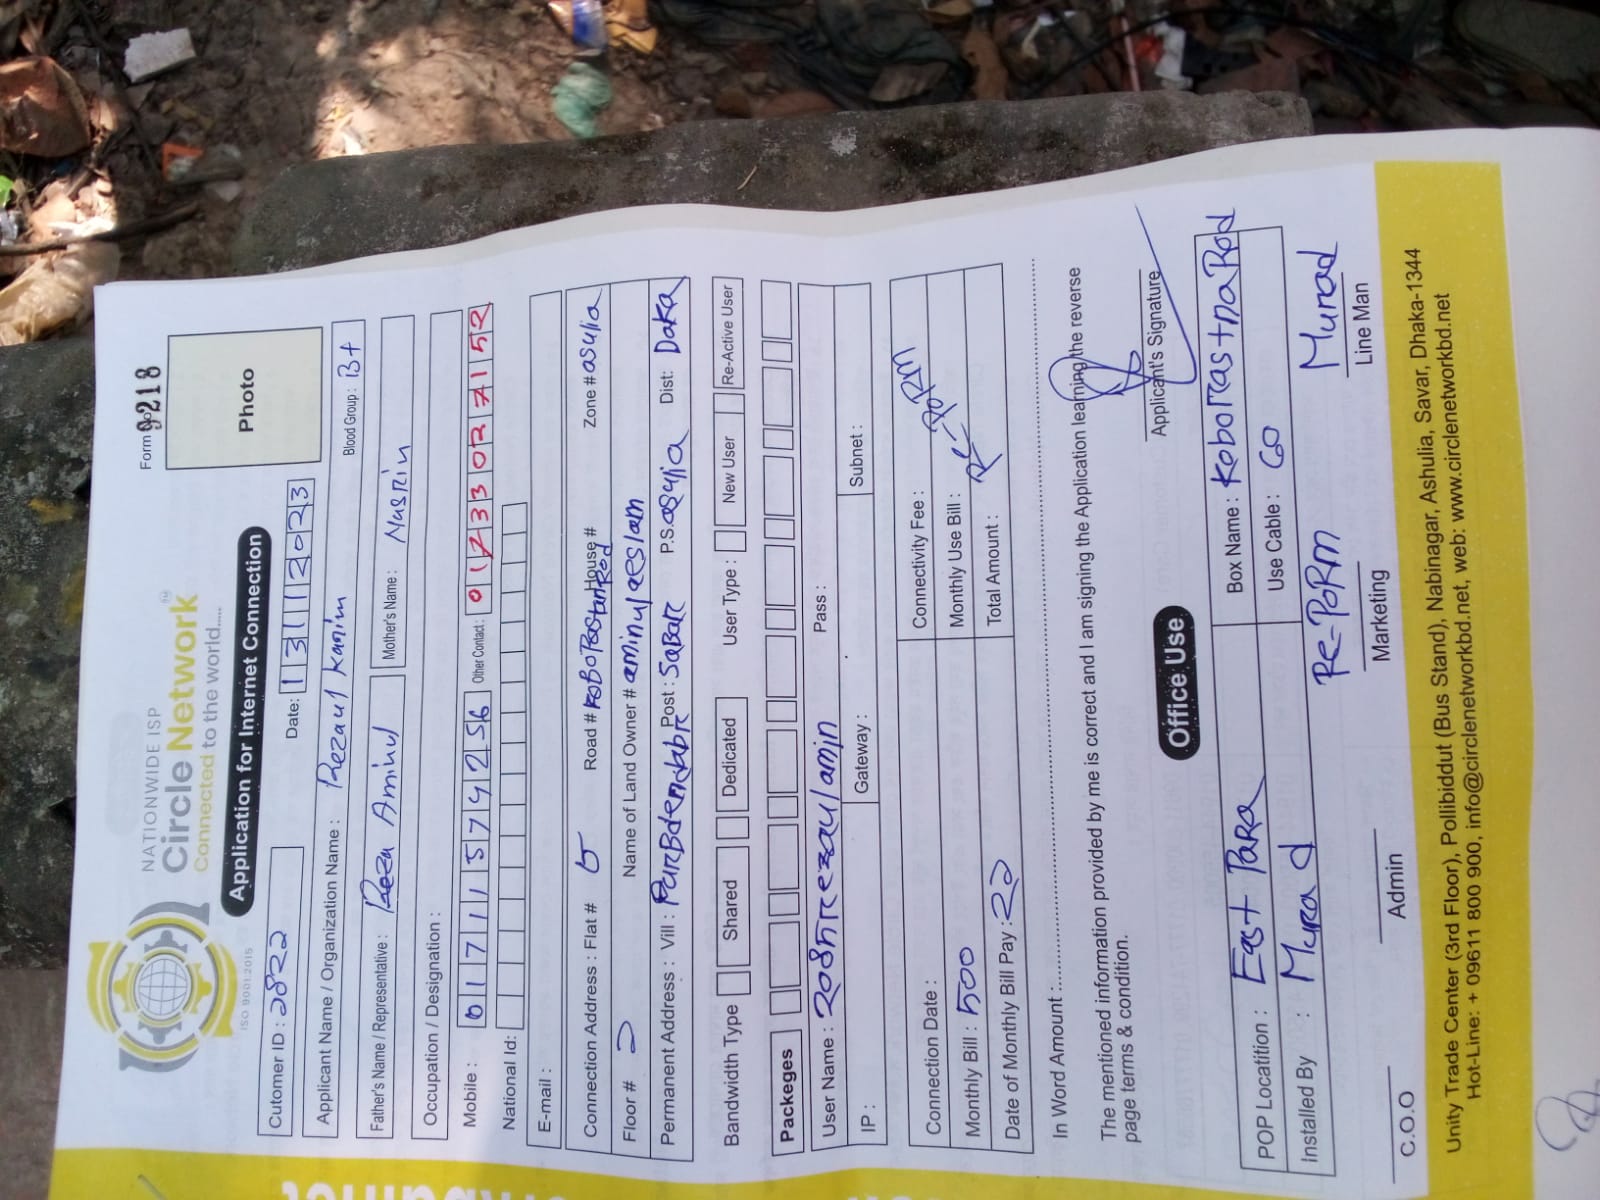 NATIONWIDE ISP
Circle Network TM
Connected to the world.....
ISO 9001:2015
Form No 9218
Photo
Application for Internet Connection
Cutomer ID : 2822
Date: 13112023
Applicant Name / Organization Name : Rezaul Karim
Blood Group : B+
Father's Name / Representative : Reza Aminul
Mother's Name : Nasrin
Occupation / Designation :
Mobile : 01711574256 Other Contact : 01233027152
National Id:
E-mail :
Connection Address : Flat # 5 Road # KoboRastanRod House # Zone # asulia
Floor # 2 Name of Land Owner # aminul aeslam
Permanent Address : Vill : Post : SaBaR P.S. asulia Dist: Daka
Bandwidth Type Shared Dedicated User Type : New User Re-Active User
Packeges
User Name : 2085rezaulamin Pass :
IP : Gateway : Subnet :
Connection Date : Connectivity Fee :
Monthly Bill : 500 Monthly Use Bill : Re-PoRm
Date of Monthly Bill Pay : 22 Total Amount :
In Word Amount
The mentioned information provided by me is correct and I am signing the Application learning the reverse
page terms & condition.
Applicant's Signature
Office Use
POP Locatition : East PaRa Box Name : KoboRastnaRod
Installed By : Murad Use Cable : 60
Re-PoRm Murad
C.O.O Admin Marketing Line Man
Unity Trade Center (3rd Floor), Pollibiddut (Bus Stand), Nabinagar, Ashulia, Savar, Dhaka-1344
Hot-Line: + 09611 800 900, info@circlenetworkbd.net, web: www.circlenetworkbd.net